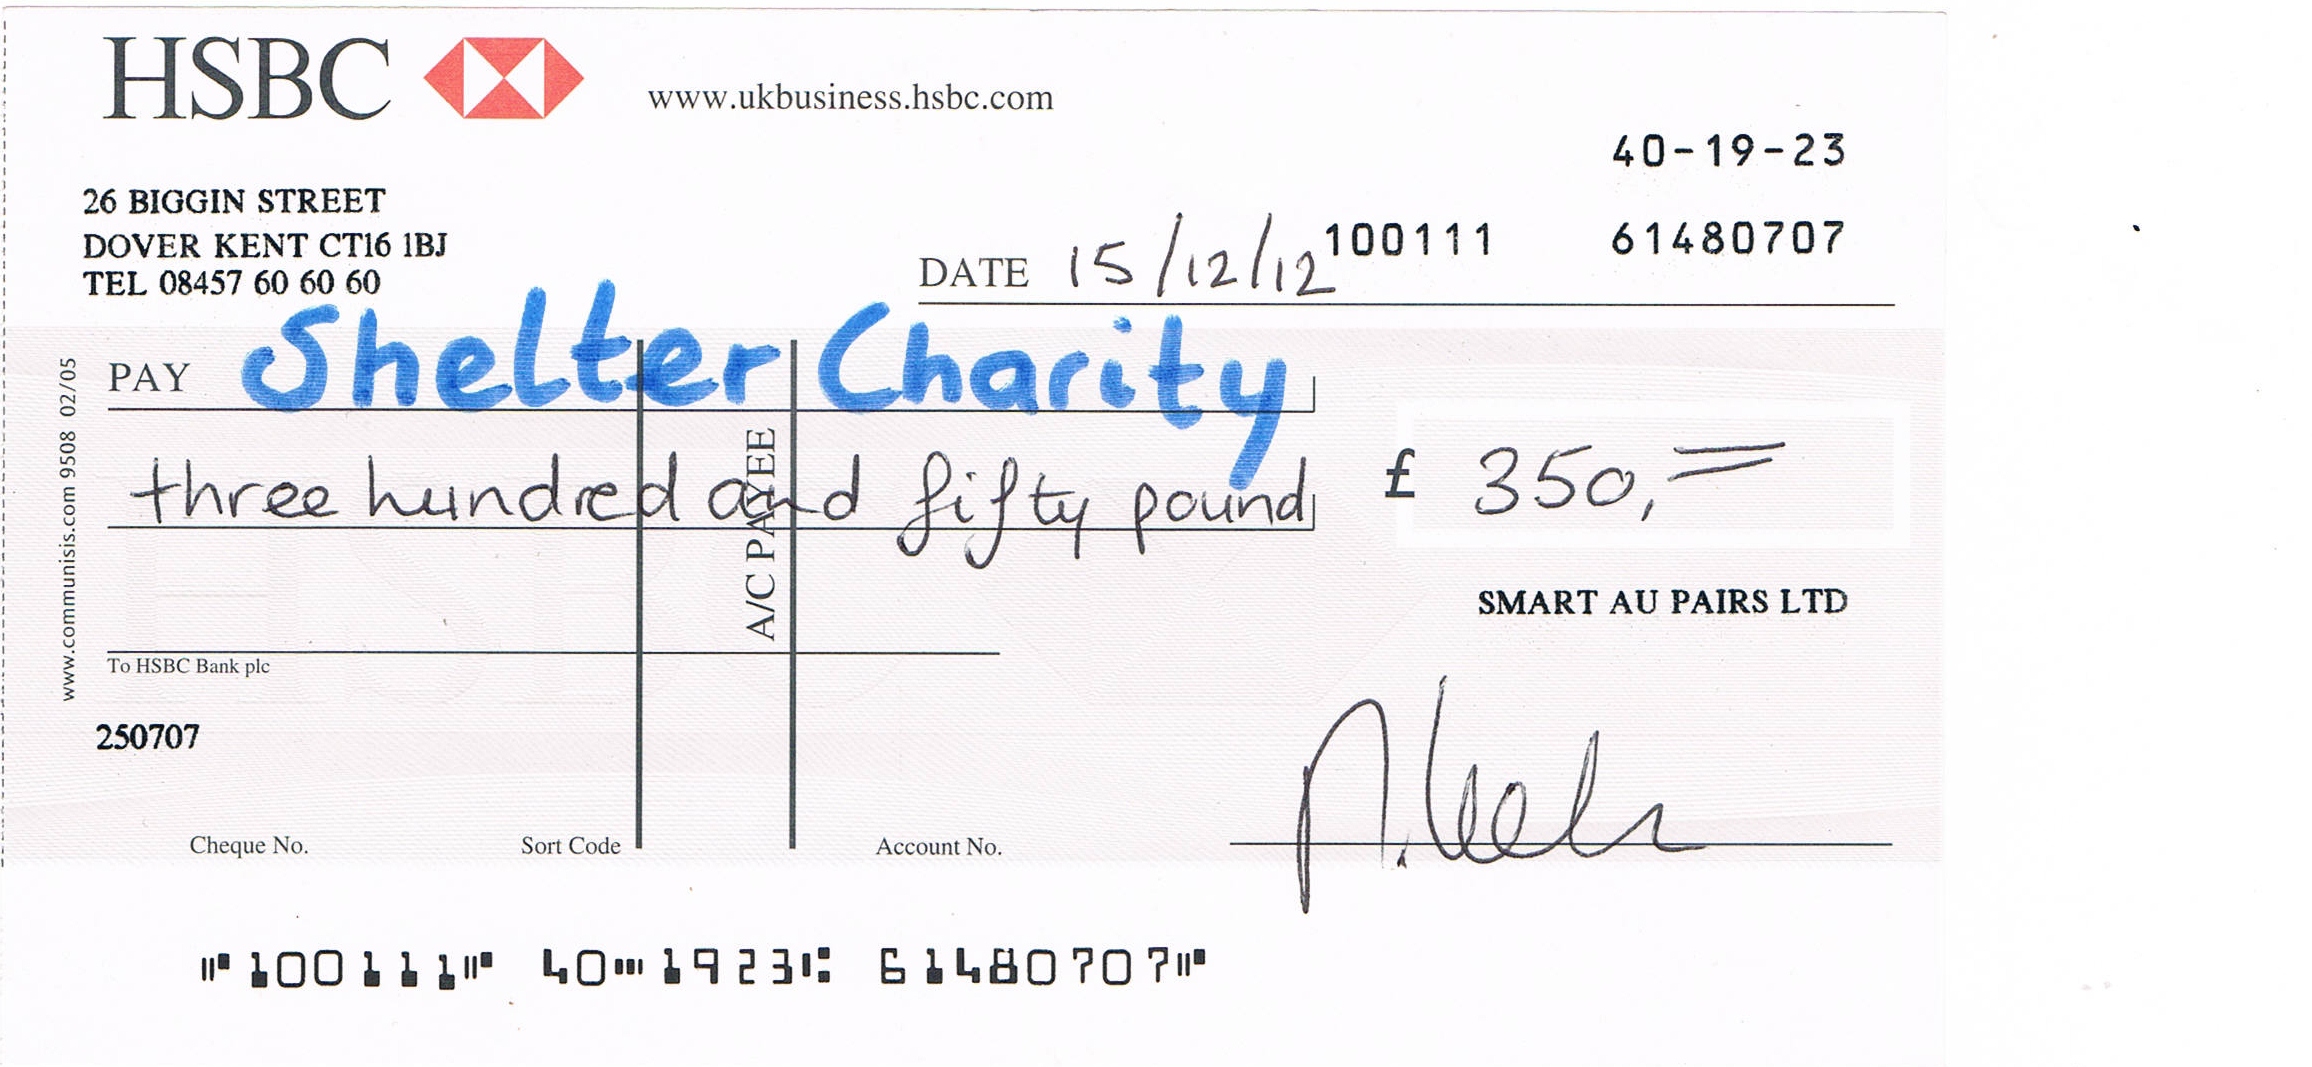 HSBC
www.ukbusiness.hsbc.com
40-19-23
26 BIGGIN STREET
DOVER KENT CT16 1BJ
TEL 08457 60 60 60
DATE 15/12/12 100111 61480707
PAY Shelter Charity
three hundred and fifty pound £ 350,=
A/C PAYEE
SMART AU PAIRS LTD
To HSBC Bank plc
www.communisis.com 9508 02/05
250707
Cheque No. Sort Code Account No.
⑈100111⑈ 40⑉1923⑆ 61480707⑈